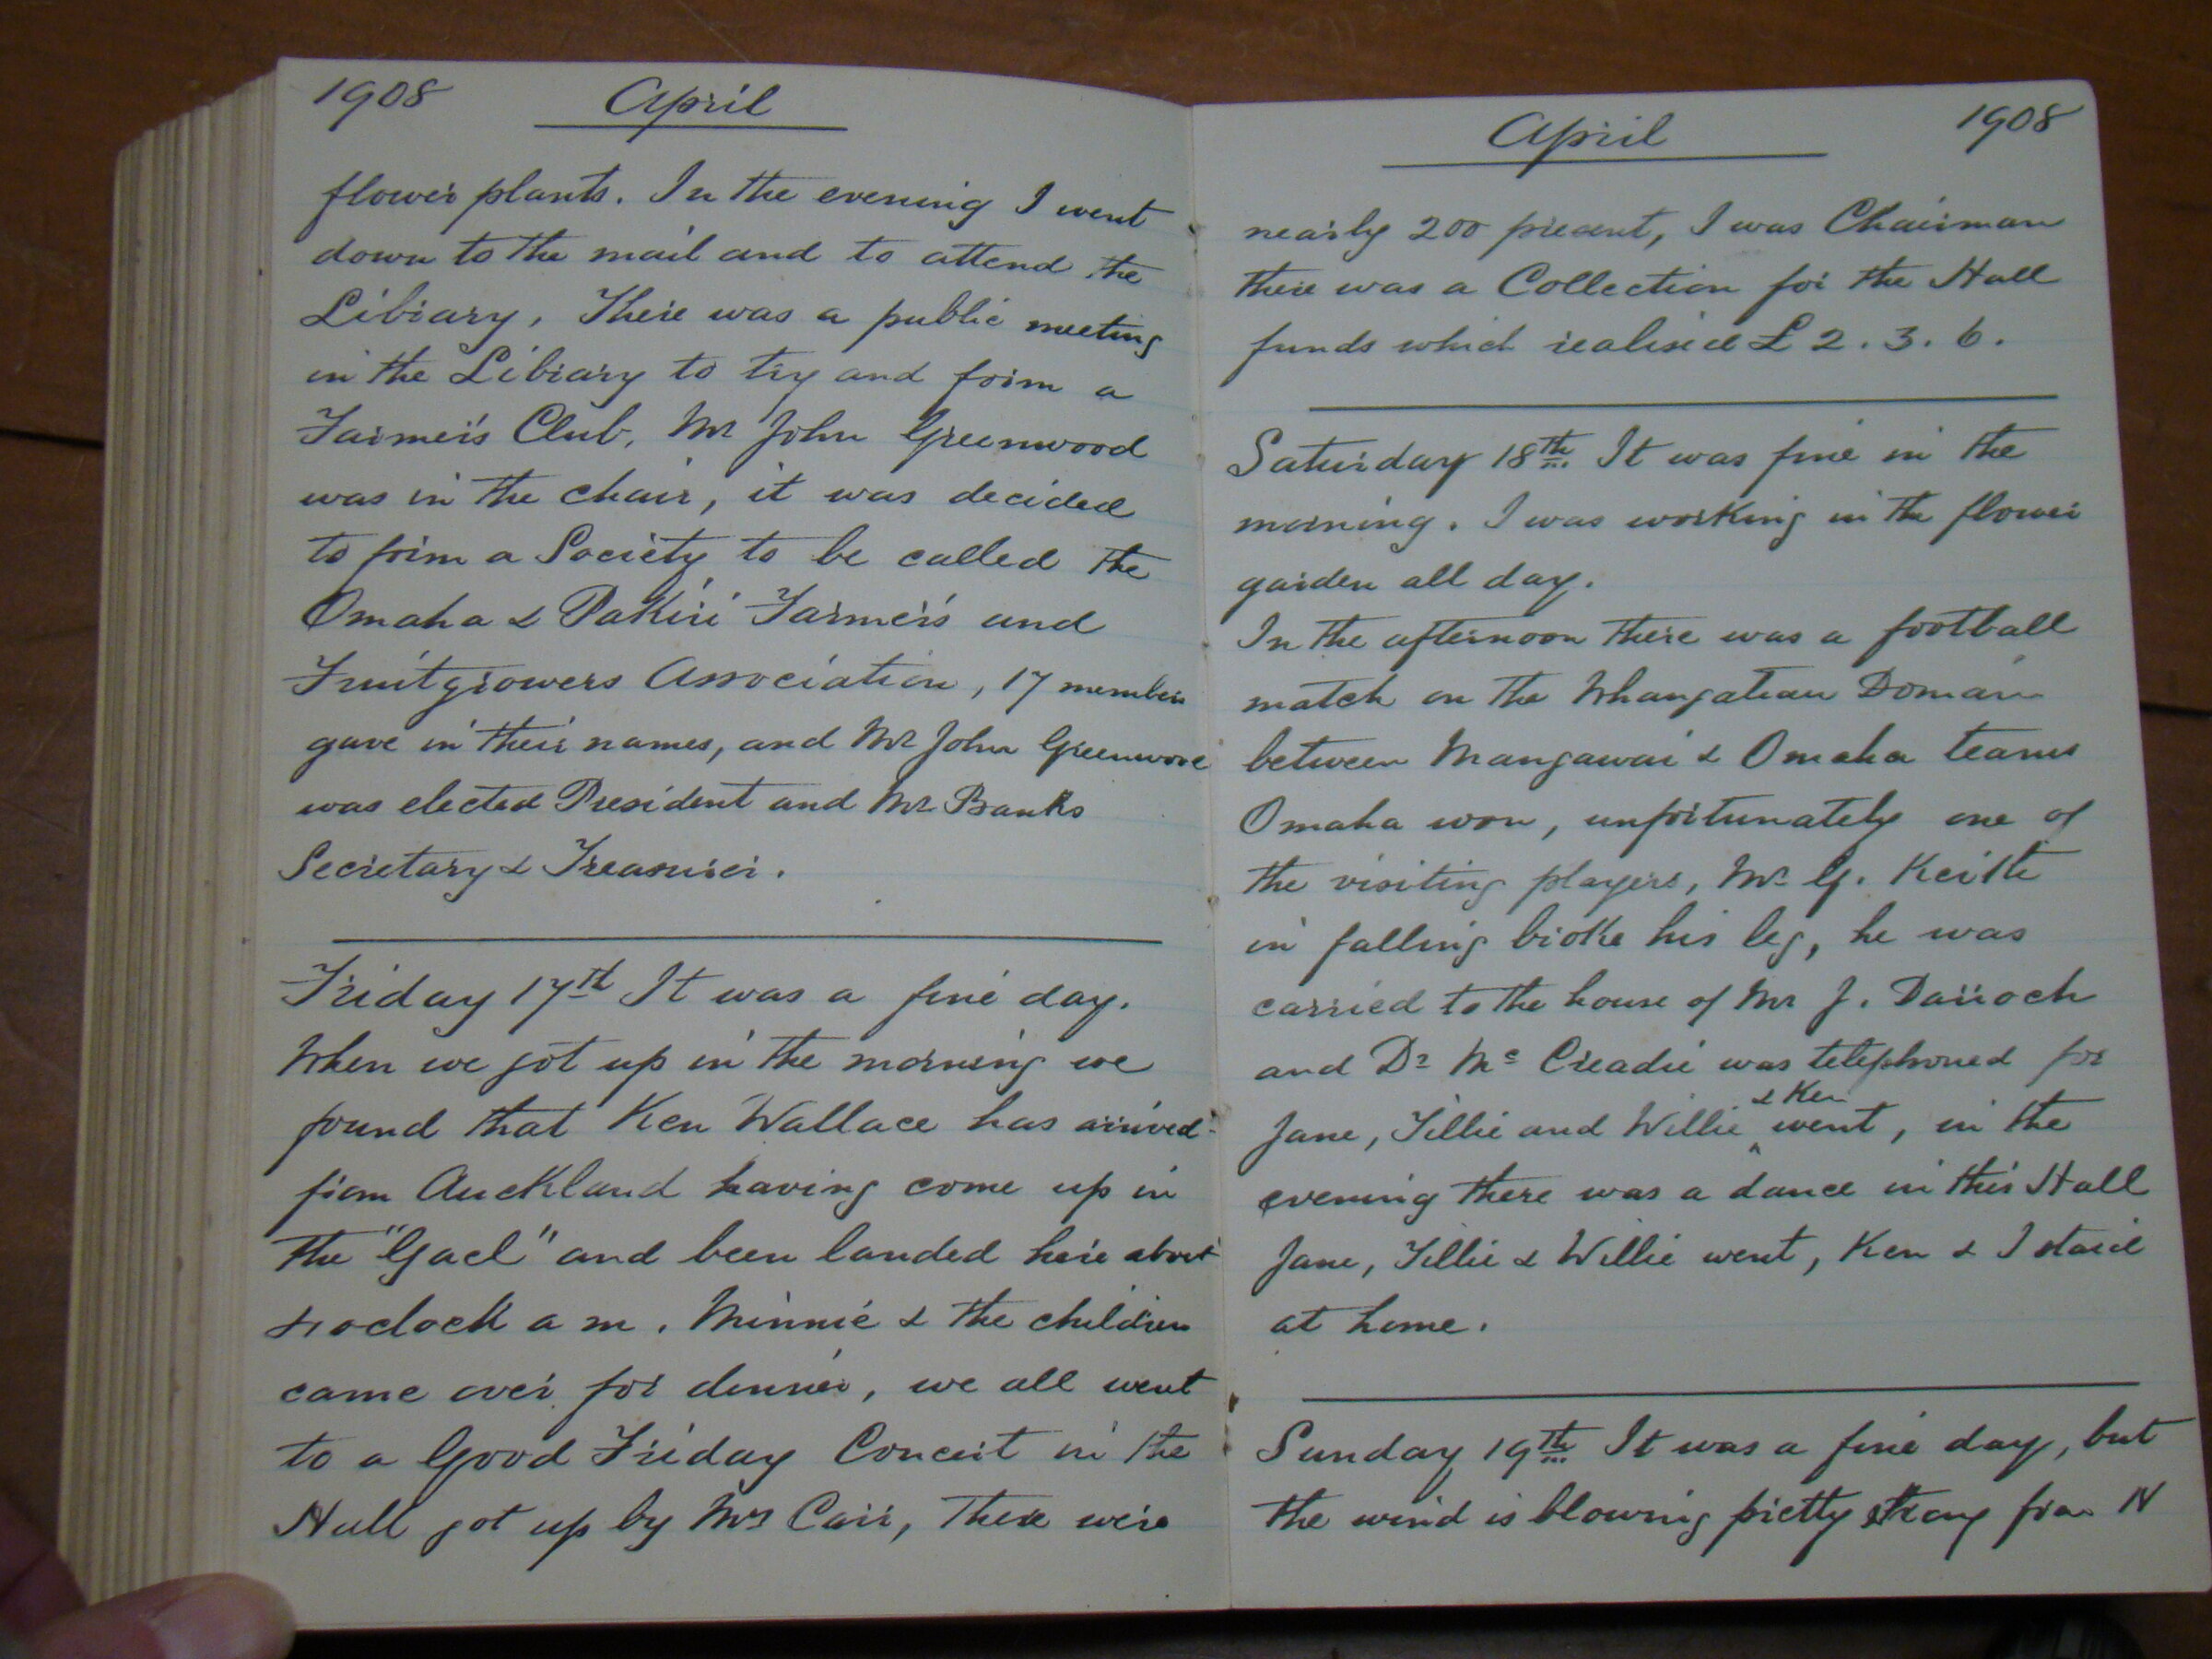 1908 April
flower plants. In the evening I went
down to the mail and to attend the
Library, There was a public meeting
in the Library to try and form a
Farmers Club, Mr John Greenwood
was in the chair, it was decided
to form a Society to be called the
Omaha & Pakiri Farmers and
Fruitgrowers Association, 17 members
gave in their names, and Mr John Greenwood
was elected President and Mr Banks
Secretary & Treasurer.
Friday 17th It was a fine day.
When we got up in the morning we
found that Ken Wallace has arrived
from Auckland having come up in
the "Gael" and been landed here about
4 oclock a m. Minnie & the children
came over for dinner, we all went
to a Good Friday Concert in the
Hall got up by Mrs Carr, There were
April 1908
nearly 200 present, I was Chairman
there was a Collection for the Hall
funds which realised £ 2. 3. 6.
Saturday 18th It was fine in the
morning. I was working in the flower
garden all day.
In the afternoon there was a football
match on the Whangateau Domain
between Mangawai & Omaha teams
Omaha won, unfortunately one of
the visiting players, Mr G. Keith
in falling broke his leg, he was
carried to the house of Mr J. Darroch
and Dr Mc Creadie was telephoned for
Jane, Tillie and Willie & Ken went, in the
evening there was a dance in this Hall
Jane, Tillie & Willie went, Ken & I staid
at home.
Sunday 19th It was a fine day, but
the wind is blowing pretty strong from N